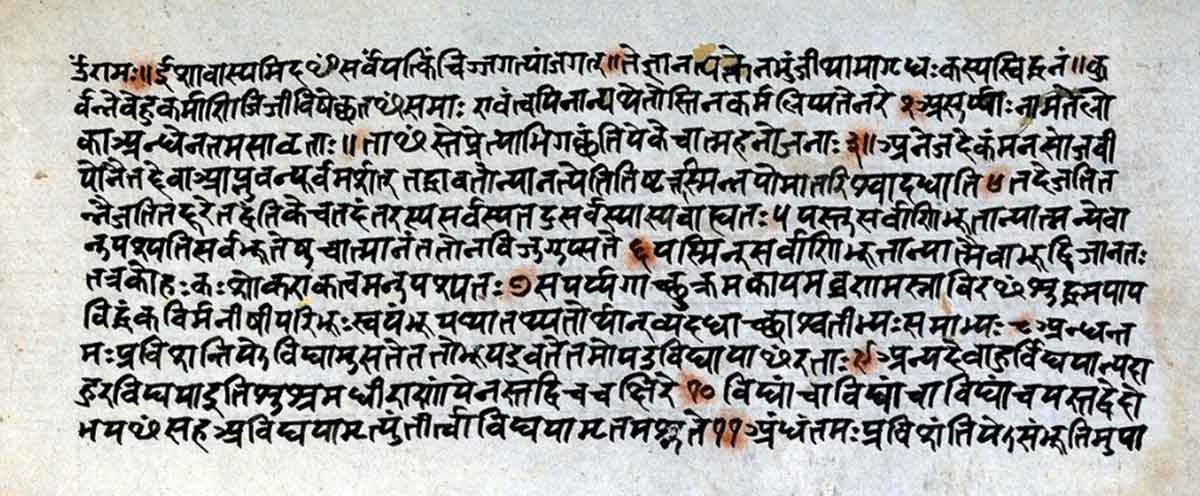 ॐरामः॥ईशावास्यमिदꣳसर्वंयत्किंचिज्जगत्यांजगत्॥तेनत्यक्तेनभुंजीथामागृधःकस्यस्विद्धनं॥कु
र्वन्नेवेहकर्माणिजिजीविषेच्छतꣳसमाः एवंत्वयिनान्यथेतोस्तिनकर्मलिप्यतेनरे २असुर्य्याःनामतेलो
काअन्धेनतमसावृताः॥ताꣳस्तेप्रेत्याभिगच्छंतियेकेचात्महनोजनाः३॥अनेजदेकंमनसोजवी
योनैनद्देवाआप्नुवन्पूर्वमर्शत् तद्धावतोन्यानत्येतितिष्टत्तस्मिन्नपोमातरिश्वादधाति ४ तदेजतित
न्नैजतितद्दूरेतद्वंतिकेचतदंतरस्यसर्वस्यतदुसर्वस्यास्यबाह्यतः ५ यस्तुसर्वाणिभूतान्यात्मन्येवा
नुपश्यतिसर्वभूतेषुचात्मानंततोनविजुगुप्सते ६ यस्मिन्सर्वाणिभूतान्यात्मैवाभूद्विजानतः
तत्रकोहःकःशोकएकत्वमनुपश्यतः ७ सपर्य्यगाच्छुक्रमकायमव्रणमस्नाविरꣳशुद्धमपाप
विद्धंकविर्मनीषीपरिभूःस्वयंभूयाथातथ्यतोर्थान्व्यदधाच्छाश्वतीभ्यःसमाभ्यः ८ अन्धन्त
मःप्रविशन्तियेऽविद्यामुपासतेततोभूयइवतेतमोयउविद्यायाꣳरताः ९ अन्यदेवाहुर्विद्ययान्यदा
हुरविद्ययाइतिशुश्रुमधीराणांयेनस्तद्विचचक्षिरे १० विद्यांचाविद्यांचाविद्यांचयस्तद्वेदो
भयꣳसहअविद्ययामृत्युंतीर्त्वाविद्ययामृतमश्नुते ११ अंधंतमःप्रविशंतियेऽसंभूतिमुपा